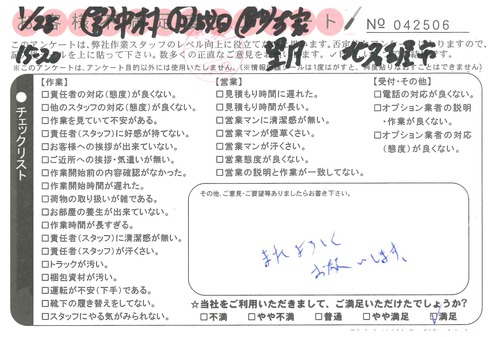 № 042506
このアンケートは、弊社作業スタッフのレベル向上に役立て
1/28
【作業】
□責任者の対応(態度)が良くない。
□他のスタッフの対応(態度)が良くない。
□作業を見ていて不安がある。
□責任者(スタッフ)に好感が持てない。
□お客様への挨拶が出来ていない。
□ご近所への挨拶・気遣いが無い。
□作業開始前の内容確認がなかった。
□作業開始時間が遅れた。
□荷物の取り扱いが雑である。
□お部屋の養生が出来ていない。
□作業時間が長すぎる。
□責任者(スタッフ)に清潔感が無い。
□責任者(スタッフ)が汗くさい。
□トラックが汚い。
□梱包資材が汚い。
□運転が不安(下手)である。
□靴下の履き替えをしてない。
□スタッフにやる気がみられない。
【営業】
□見積もり時間に遅れた。
□見積もり時間が長い。
□営業マンに清潔感が無い。
□営業マンが煙草くさい。
□営業マンが汗くさい。
□営業態度が良くない。
□営業の説明と作業が一致してない。
【受付・その他】
□電話の対応が良くない。
□オプション業者の説明
・作業が良くない。
□オプション業者の対応
(態度)が良くない。
チェックリスト
その他、ご意見・ご要望等ありましたらお書き下さい。
またよろしく
お願いします。
☆当社をご利用いただきまして、ご満足いただけたでしょうか?
□不満 □やや不満 □普通 □やや満足 □満足